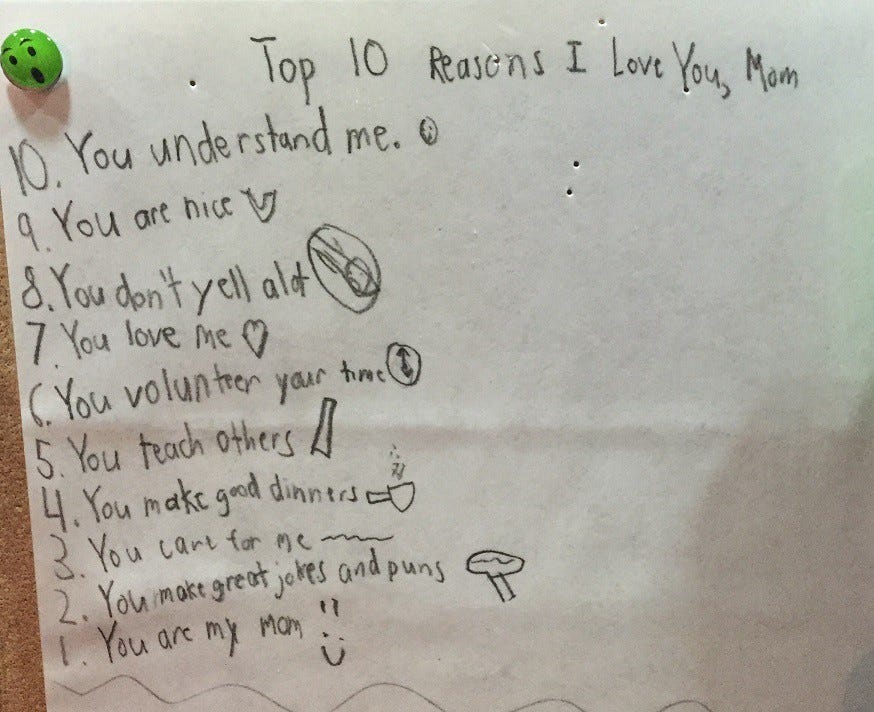 Top 10 Reasons I Love You, Mom
10. You understand me.
9. You are nice
8. You don't yell alot
7. You love me
6. You volunteer your time
5. You teach others
4. You make good dinners
3. You care for me
2. You make great jokes and puns
1. You are my mom !!